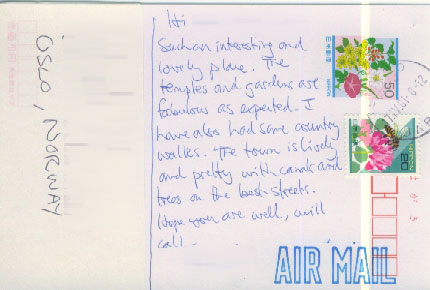 Hi
Such an interesting and
lovely place. The
temples and gardens are
fabulous as expected. I
have also had some country
walks. The town is lively
and pretty with canals and
trees on the best streets.
Hope you are well, will
call.
OSLO, NORWAY
日本郵便
50
NIPPON
20
NIPPON
AIR MAIL